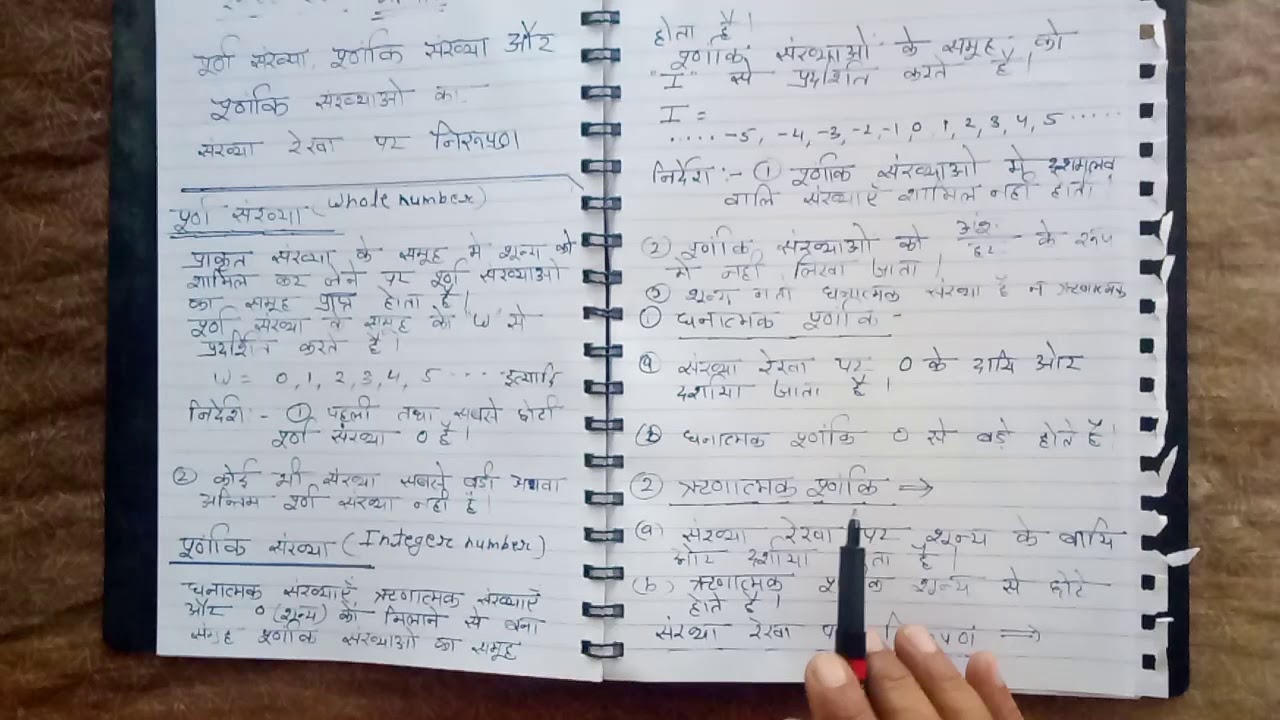 पूर्ण संख्या, पूर्णांक संख्या और
पूर्णांक संख्याओ का
संख्या रेखा पर निरूपण
पूर्ण संख्या (Whole number)
प्राकृत संख्या के समूह मे शून्य को
शामिल कर लेने पर पूर्ण संख्याओ
का समूह प्राप्त होता है।
पूर्ण संख्या के समूह को 'W' से
प्रदर्शित करते है।
W = 0, 1, 2, 3, 4, 5 .... इत्यादि
निर्देश :- ① पहली तथा सबसे छोटी
पूर्ण संख्या 0 है।
② कोई भी संख्या सबसे बडी अथवा
अन्तिम पूर्ण संख्या नही है।
पूर्णांक संख्या (Integer number)
धनात्मक संख्याएँ ऋणात्मक संख्याएँ
और 0 (शून्य) को मिलाने से बना
समूह पूर्णांक संख्याओ का समूह
होता है।
पूर्णांक संख्याओं के समूह को
"I" से प्रदर्शित करते है।
I =
..... -5, -4, -3, -2, -1, 0, 1, 2, 3, 4, 5 .....
निर्देश :- ① पूर्णांक संख्याओ मे दशमलव
वालि संख्याएँ शामिल नही होता।
② पूर्णांक संख्याओ को अंश/हर के रूप
मे नही लिखा जाता।
③ शून्य न तो धनात्मक संख्या है न ऋणात्मक
① धनात्मक पूर्णांक -
(a) संख्या रेखा पर 0 के दायि ओर
दर्शाया जाता है।
(b) धनात्मक पूर्णांक 0 से बडे होते है।
② ऋणात्मक पूर्णांक ⇒
(a) संख्या रेखा पर शून्य के बायि
ओर दर्शाया है।
(b) ऋणात्मक शून्य से छोटे
होते है।
संख्या रेखा ⇒